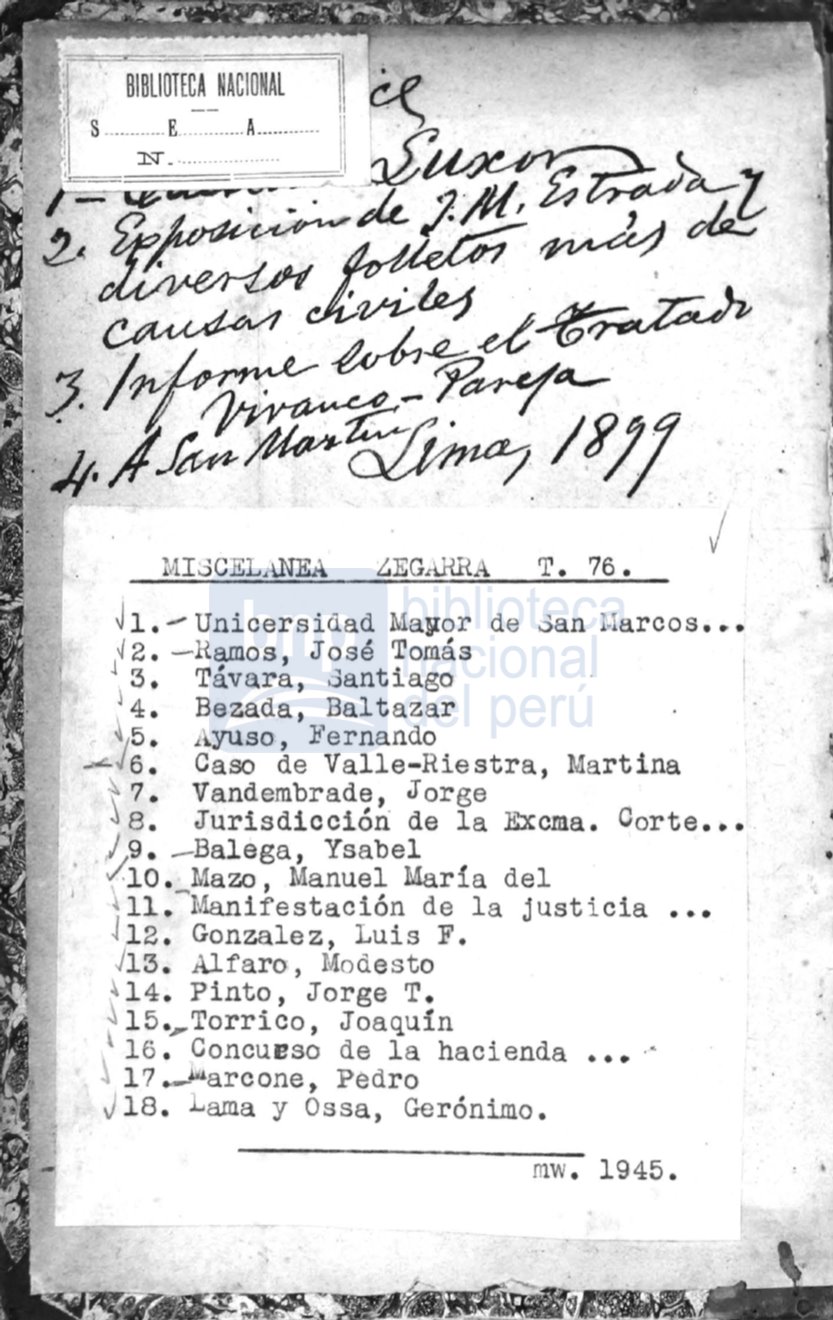 BIBLIOTECA NACIONAL
S. E. A.
N.
ce
1- Luxor
2. Exposición de J. M. Estrada y
diversos folletos más de
causas civiles
3. Informe sobre el Tratado
Vivanco - Pareja
4. A San Martín
Lima, 1899
MISCELANEA ZEGARRA T. 76.
1.- Unicersidad Mayor de San Marcos...
2. -Ramos, José Tomás
3. Távara, Santiago
4. Bezada, Baltazar
5. Ayuso, Fernando
6. Caso de Valle-Riestra, Martina
7. Vandembrade, Jorge
8. Jurisdicción de la Excma. Corte...
9. -Balega, Ysabel
10. Mazo, Manuel María del
11. Manifestación de la justicia ...
12. Gonzalez, Luis F.
13. Alfaro, Modesto
14. Pinto, Jorge T.
15. Torrico, Joaquín
16. Concurso de la hacienda ...
17.-Marcone, Pedro
18. Lama y Ossa, Gerónimo.
mw. 1945.
bnp biblioteca
nacional
del perú